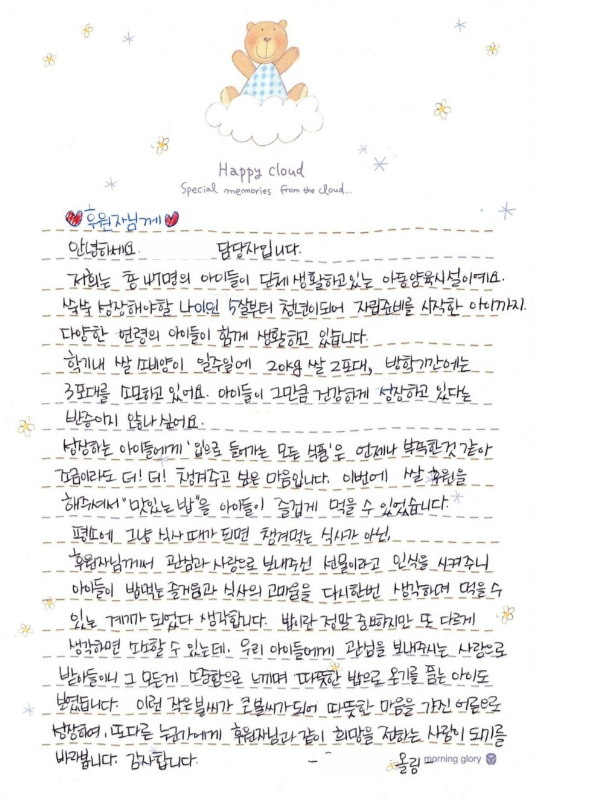 Happy cloud
Special memories from the cloud...
후원자님께
안녕하세요. 담당자입니다.
저희는 총 47명의 아이들이 단체 생활하고있는 아동양육시설이예요.
쑥쑥 성장해야할 나이인 5살부터 청년이되어 자립준비를 시작한 아이까지
다양한 연령의 아이들이 함께 생활하고 있습니다.
학기내 쌀 소비양이 일주일에 20kg 쌀 2포대, 방학기간에는
3포대를 소모하고 있어요. 아이들이 그만큼 건강하게 성장하고 있다는
반증이지 않을나 싶어요.
성장하는 아이들에게 '입으로 들어가는 모든 식품'은 언제나 부족한것 같아
조금이라도 더! 더! 챙겨주고 싶은 마음입니다. 이번에 쌀 후원을
해주셔서 "맛있는 밥"을 아이들이 즐겁게 먹을 수 있었습니다.
평소에 그냥 식사 때가 되면 챙겨먹는 식사가 아닌,
후원자님께서 관심과 사랑으로 보내주신 선물이라고 인식을 시켜주니
아이들이 밥먹는 즐거움과 식사의 고마움을 다시한번 생각하며 먹을 수
있는 계기가 되었다 생각합니다. 밥이란 정말 중요하지만 또 다르게
생각하면 소소할 수 있는데, 우리 아이들에게 관심을 보내주시는 사랑으로
받아들이니 그 모든게 소중함으로 느끼며 따뜻한 밥으로 온기를 품는 아이도
보였습니다. 이런 작은불씨가 큰불씨가되어 따뜻한 마음을 가진 어른으로
성장하여, 또다른 누군가에게 후원자님과 같이 희망을 전하는 사람이 되기를
바래봅니다. 감사합니다. - 올림 -
morning glory